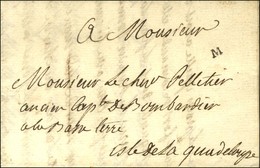 A Monsieur
M
Monsieur Le chev. Pelletier
ancien Cap.ne de Bombardier
a la Basse terre
isle de La guadeloupe